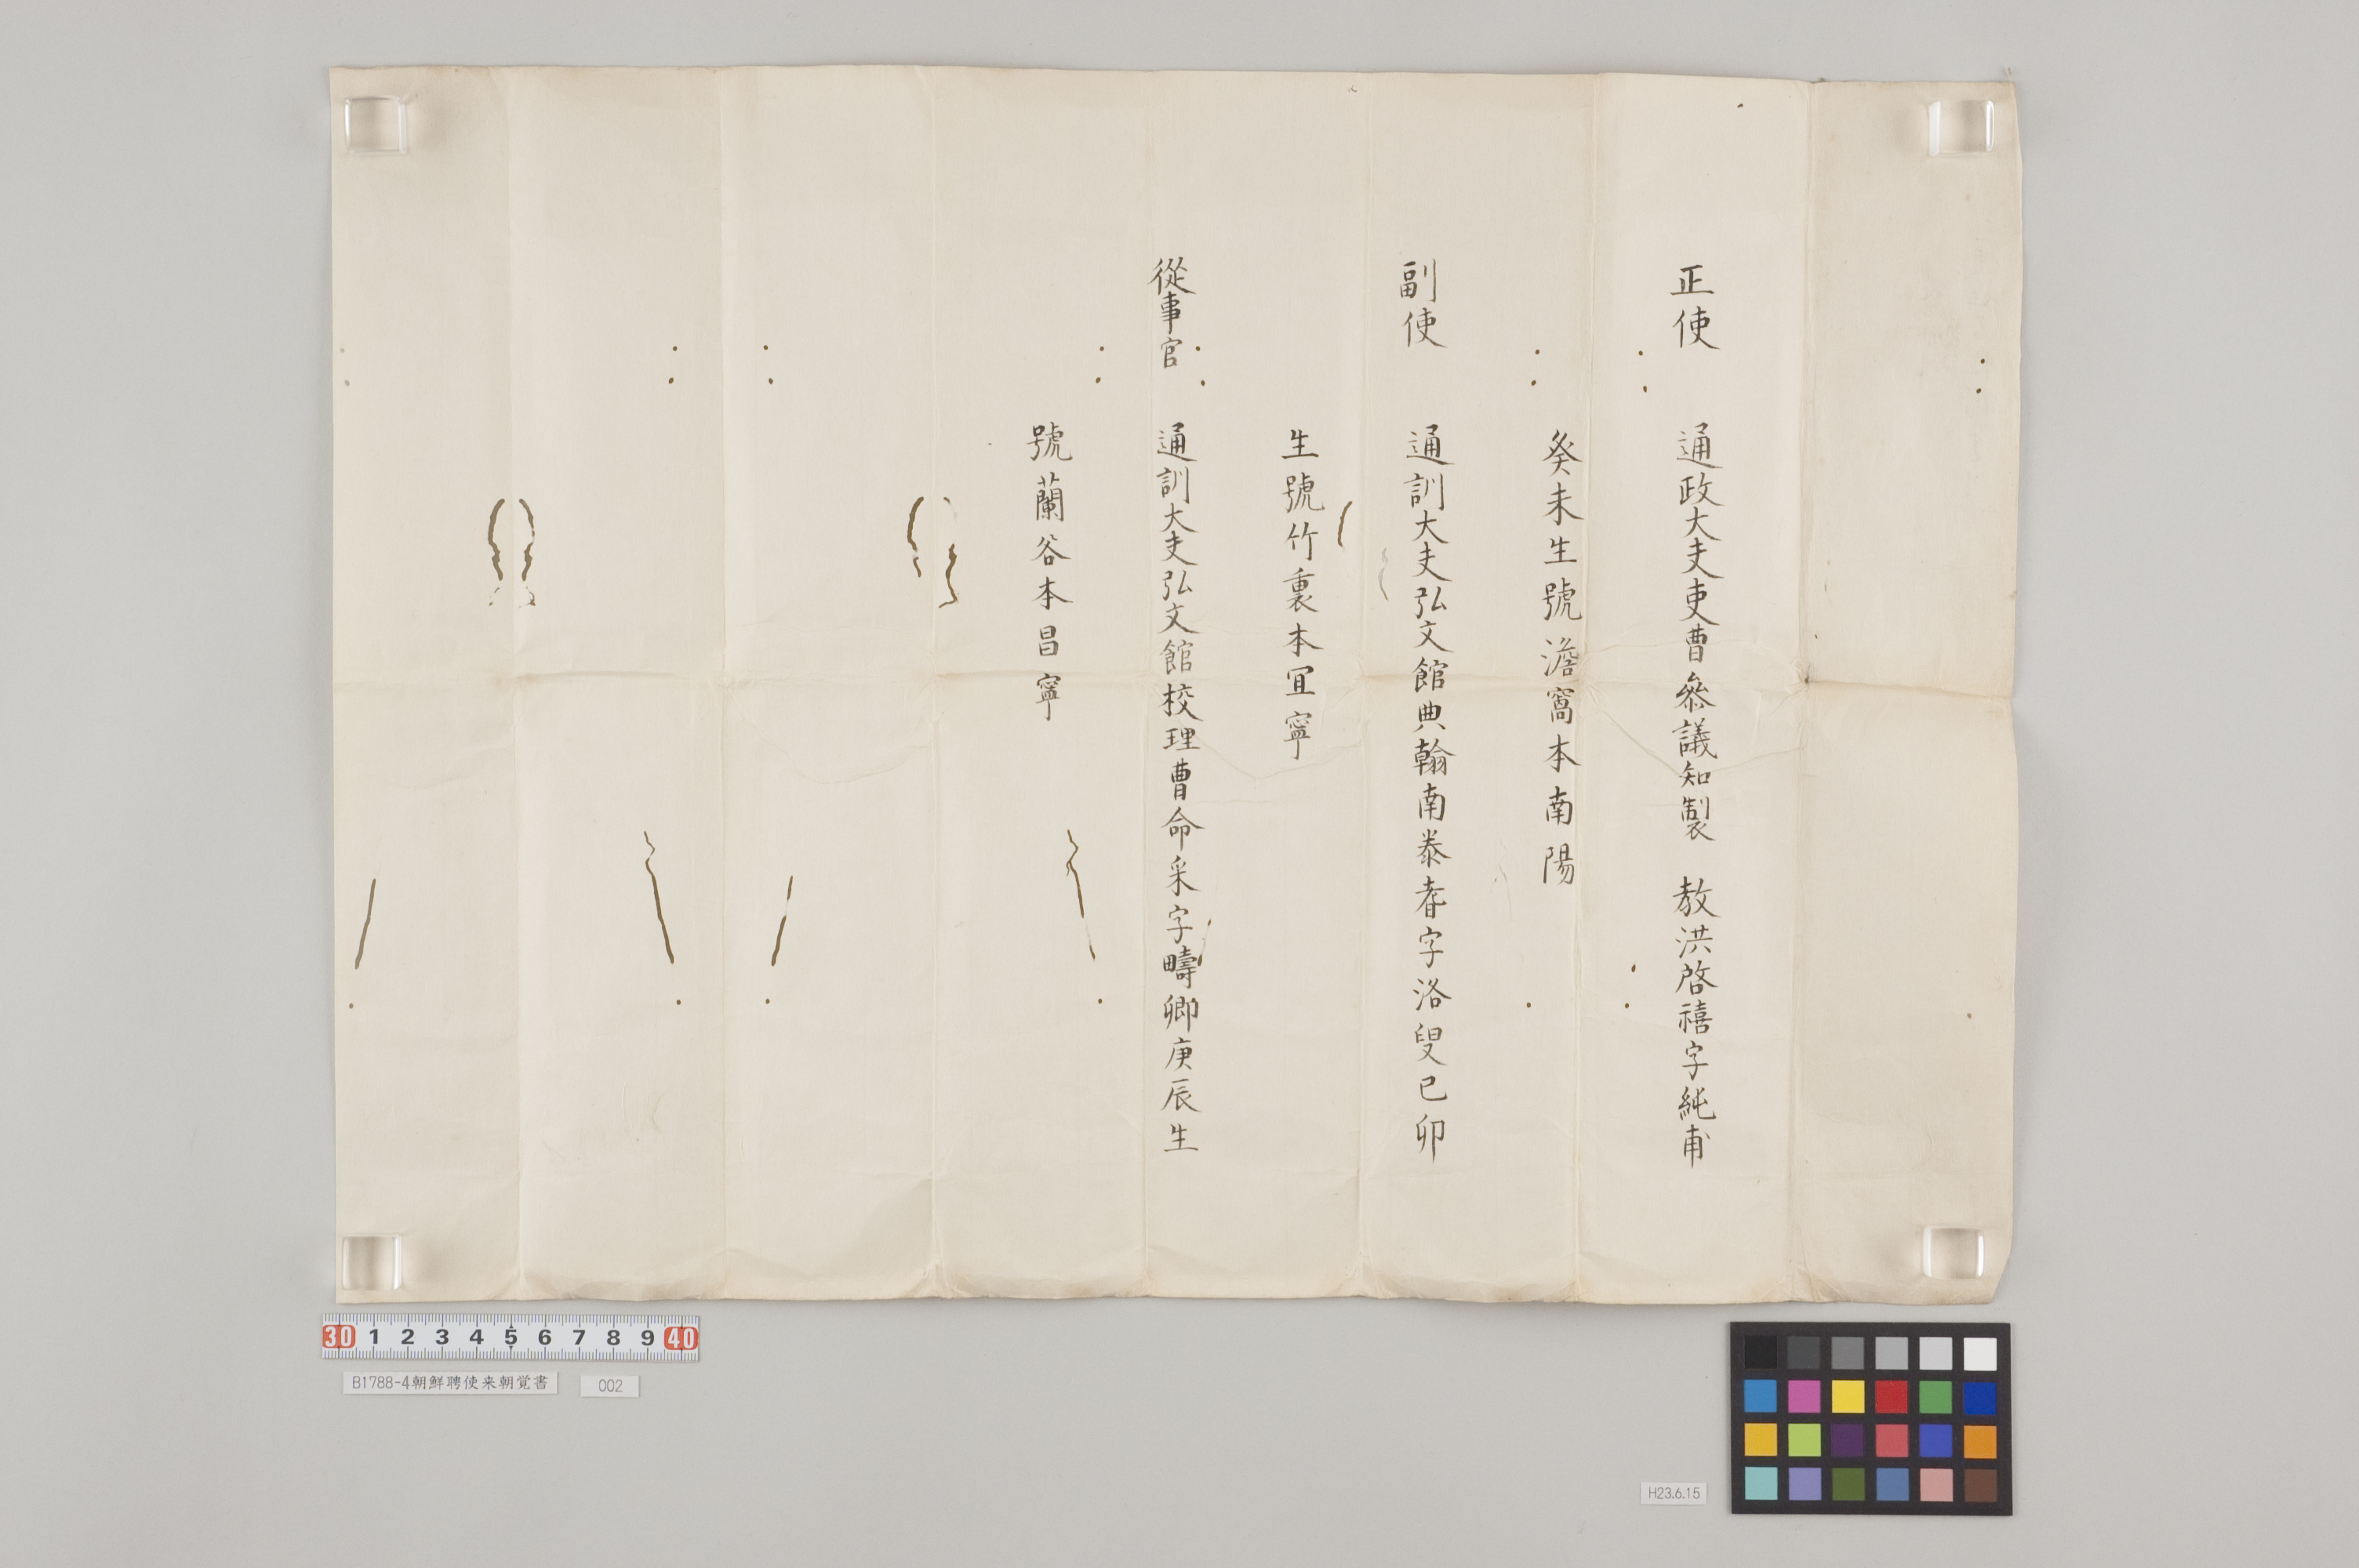 正使 通政大夫吏曹叅議知製 教洪啓禧字純甫
癸未生號澹窩本南陽
副使 通訓大夫弘文館典翰南泰耆字洛叟己卯
生號竹裏本冝寧
從事官 通訓大夫弘文館校理曹命采字疇卿庚辰生
號蘭谷本昌寧
30 1 2 3 4 5 6 7 8 9 40
B1788-4朝鮮聘使来朝覚書 002
H23.6.15